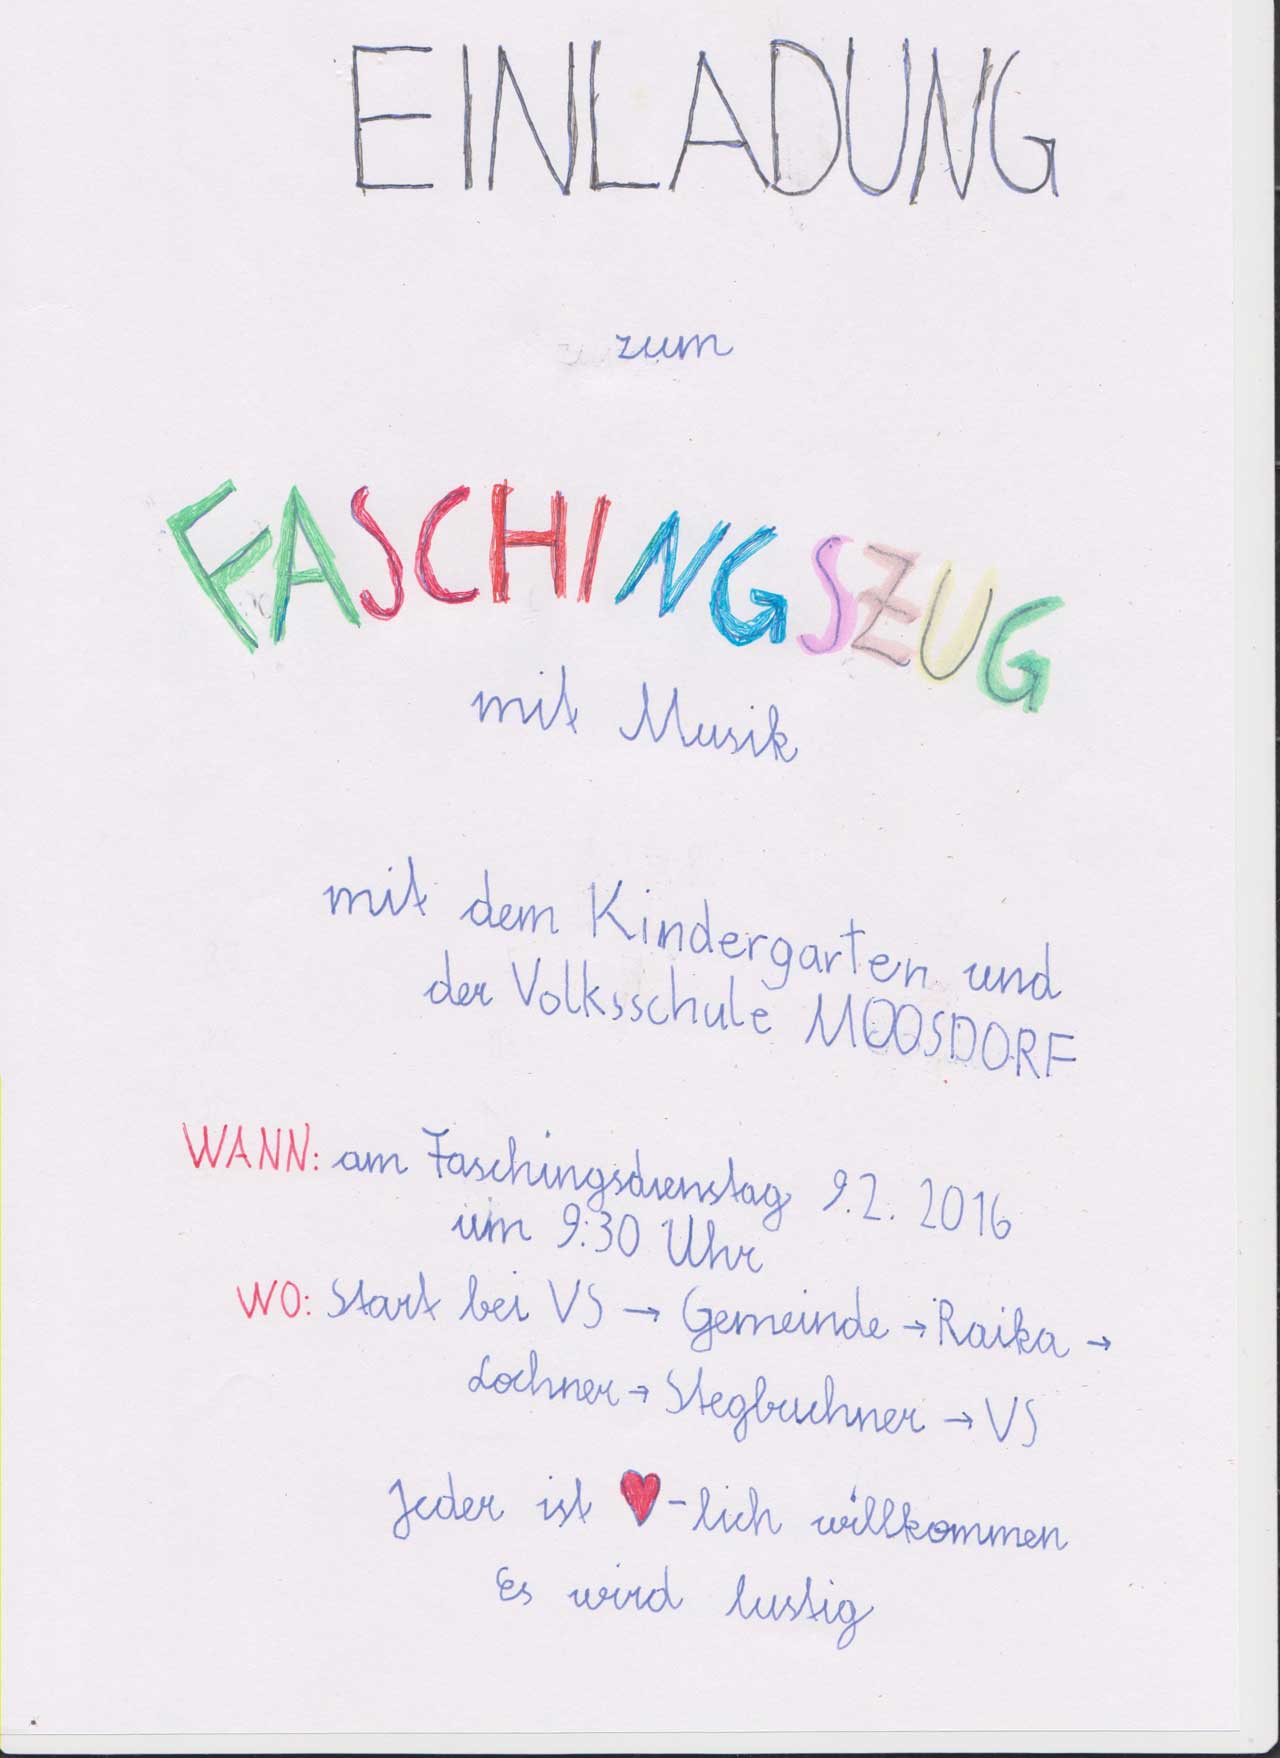 EINLADUNG
zum
FASCHINGSZUG
mit Musik
mit dem Kindergarten und
der Volksschule MOOSDORF
WANN: am Faschingsdienstag 9.2. 2016
um 9:30 Uhr
WO: Start bei VS → Gemeinde → Raika →
Lochner → Stegbuchner → VS
Jeder ist ♥-lich willkommen
Es wird lustig